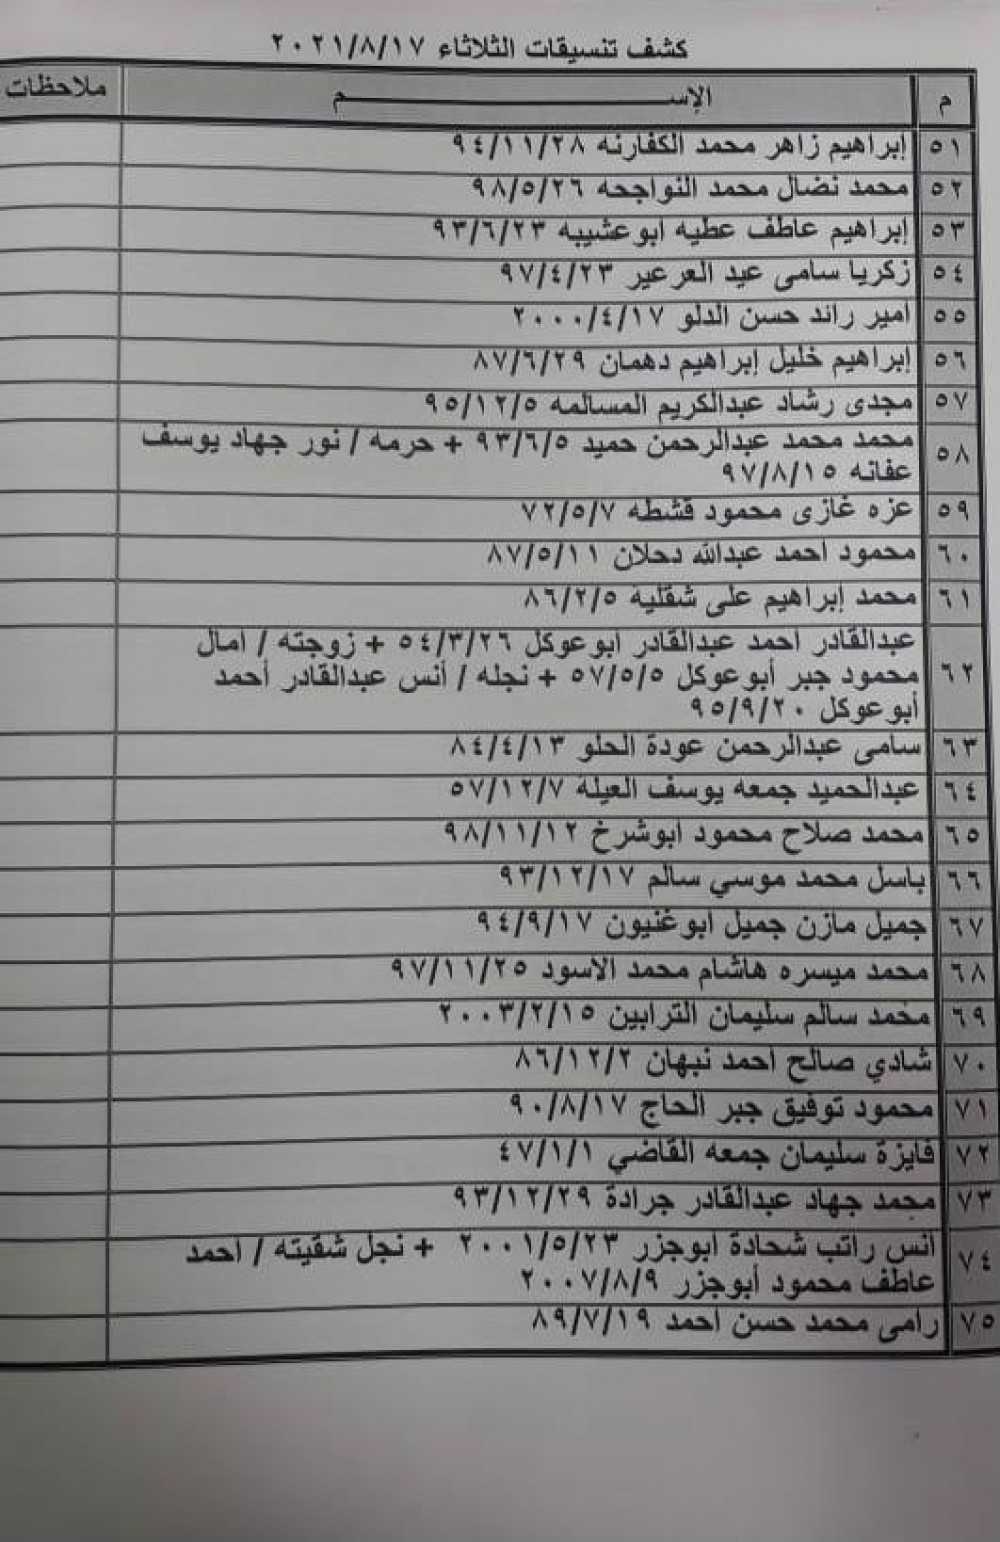 كشف تنسيقات الثلاثاء ٢٠٢١/٨/١٧
م الإســـــــــــــــم ملاحظات
٥١ إبراهيم زاهر محمد الكفارنه ٩٤/١١/٢٨
٥٢ محمد نضال محمد النواجحه ٩٨/٥/٢٦
٥٣ إبراهيم عاطف عطيه ابوعشيبه ٩٣/٦/٢٣
٥٤ زكريا سامى عيد العرعير ٩٧/٤/٢٣
٥٥ امير رائد حسن الدلو ٢٠٠٠/٤/١٧
٥٦ إبراهيم خليل إبراهيم دهمان ٨٧/٦/٢٩
٥٧ مجدى رشاد عبدالكريم المسالمه ٩٥/١٢/٥
٥٨ محمد محمد عبدالرحمن حميد ٩٣/٦/٥ + حرمه / نور جهاد يوسف
عفانه ٩٧/٨/١٥
٥٩ عزه غازى محمود قشطه ٧٢/٥/٧
٦٠ محمود احمد عبدالله دحلان ٨٧/٥/١١
٦١ محمد إبراهيم على شقلية ٨٦/٢/٥
٦٢ عبدالقادر احمد عبدالقادر ابوعوكل ٥٤/٣/٢٦ + زوجته / امال
محمود جبر أبوعوكل ٥٧/٥/٥ + نجله / أنس عبدالقادر أحمد
أبوعوكل ٩٥/٩/٢٠
٦٣ سامى عبدالرحمن عودة الحلو ٨٤/٤/١٣
٦٤ عبدالحميد جمعه يوسف العيلة ٥٧/١٢/٧
٦٥ محمد صلاح محمود ابوشرخ ٩٨/١١/١٢
٦٦ باسل محمد موسي سالم ٩٣/١٢/١٧
٦٧ جميل مازن جميل ابوغنيون ٩٤/٩/١٧
٦٨ محمد ميسره هاشام محمد الاسود ٩٧/١١/٢٥
٦٩ محمد سالم سليمان الترابين ٢٠٠٣/٢/١٥
٧٠ شادي صالح احمد نبهان ٨٦/١٢/٢
٧١ محمود توفيق جبر الحاج ٩٠/٨/١٧
٧٢ فايزة سليمان جمعه القاضي ٤٧/١/١
٧٣ محمد جهاد عبدالقادر جرادة ٩٣/١٢/٢٩
٧٤ انس راتب شحادة ابوجزر ٢٠٠١/٥/٢٣ + نجل شقيته / احمد
عاطف محمود أبوجزر ٢٠٠٧/٨/٩
٧٥ رامى محمد حسن احمد ٨٩/٧/١٩